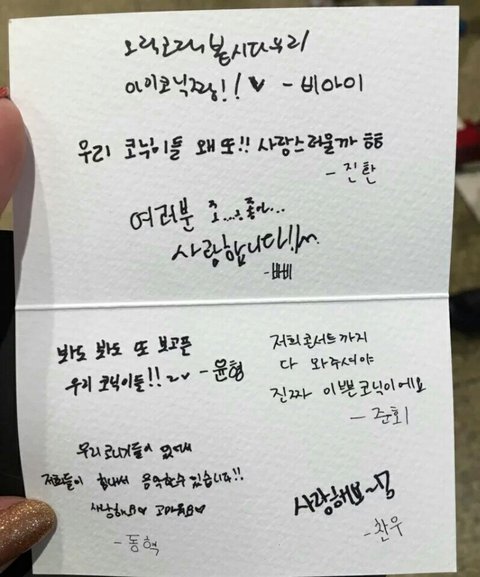 오락코락니 봅시다 우리
아이코닉 짱!! ♥ - 비아이
우리 코닉이들 왜 또!! 사랑스러울까 ㅎㅎ
- 진환
여러분 조...좋아...
사랑합니다!!
- 바비
봐도 봐도 또 보고픈
우리 코닉이들!! ♥ - 윤형
저희 콘서트까지
다 와주셔야
진짜 이쁜 코닉이에요
- 준회
우리 코니기들이 있어서
저희들이 힘내서 음악할 수 있습니다!!
사랑해요♥ 고마워요♥
- 동혁
사랑해요~
- 찬우